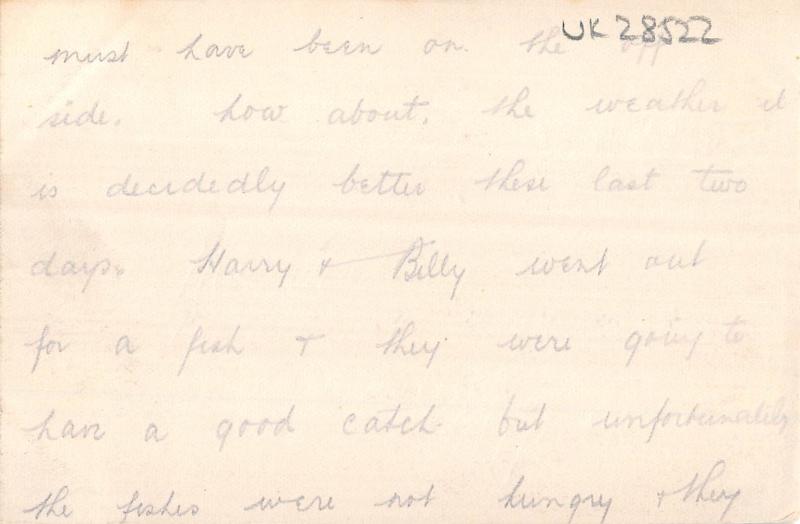 UK 28522
must have been on the off
side. how about. the weather it
is decidedly better these last two
days. Harry & Billy went out
for a fish & they were going to
have a good catch but unfortunately
the fishes were not hungry & they